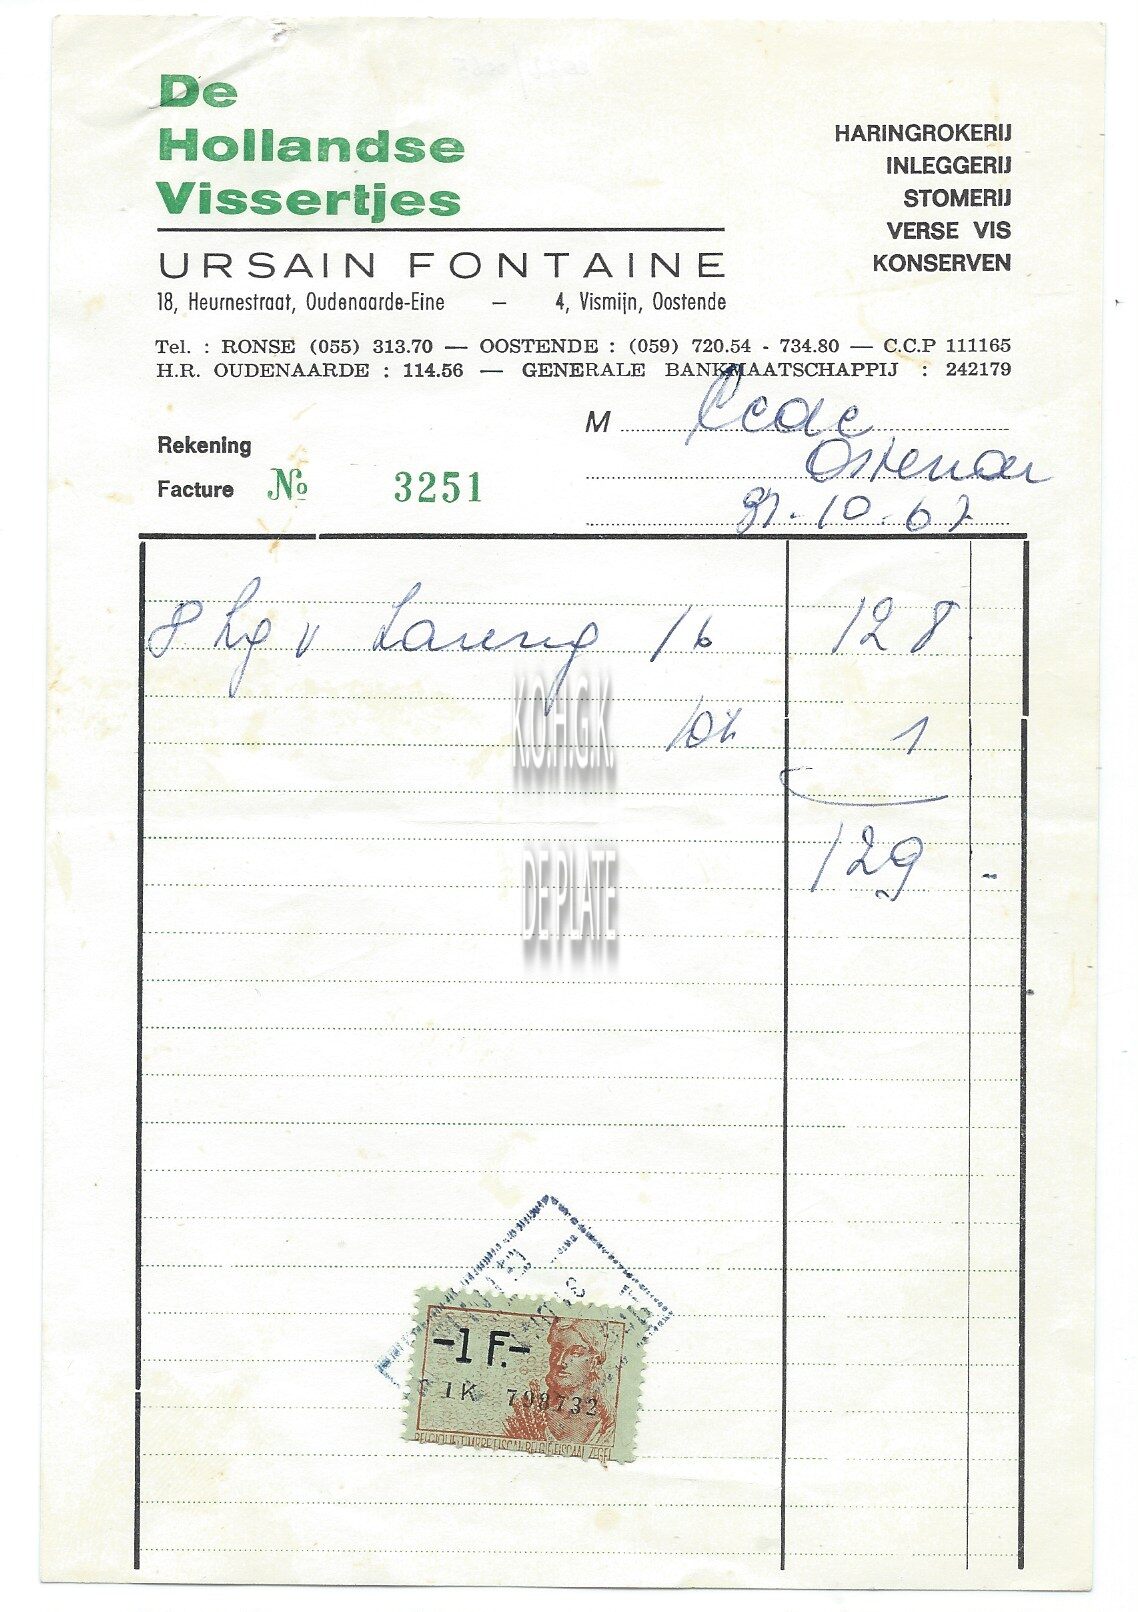 De
Hollandse
Vissertjes
HARINGROKERIJ
INLEGGERIJ
STOMERIJ
VERSE VIS
KONSERVEN
URSAIN FONTAINE
18, Heurnestraat, Oudenaarde-Eine — 4, Vismijn, Oostende
Tel. : RONSE (055) 313.70 — OOSTENDE : (059) 720.54 - 734.80 — C.C.P 111165
H.R. OUDENAARDE : 114.56 — GENERALE BANKMAATSCHAPPIJ : 242179
M
Rekening
Facture No 3251
-10-67
8 kg v 16 128
1
129 -
K.O.H.G.K.
DE PLATE
-1 F.-
BELGIQUE TIMBRE FISCAL BELGIË FISCAAL ZEGEL